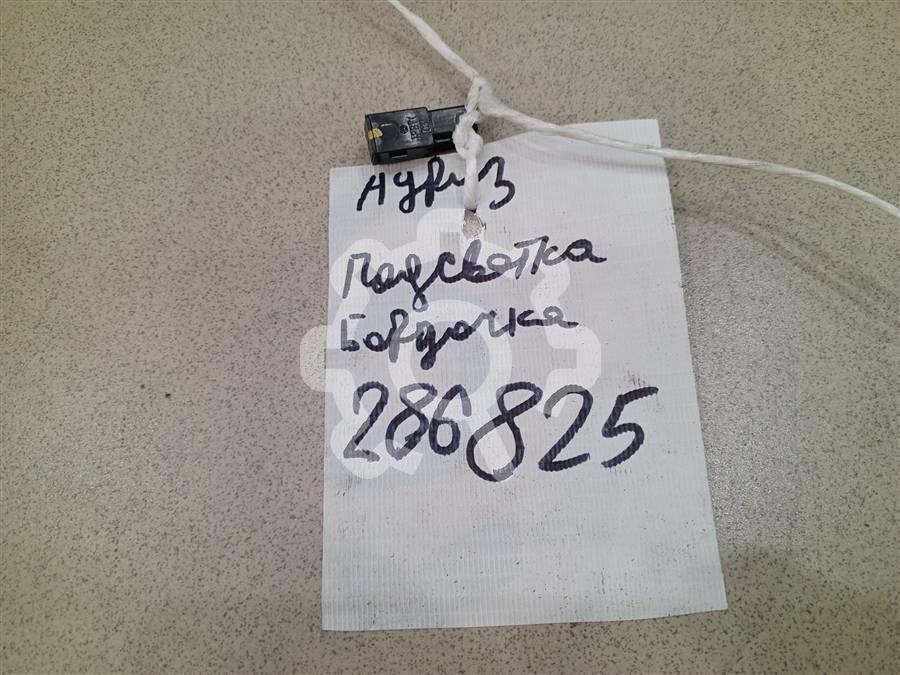 Ауриз
Подсветка
Бардачка
286825